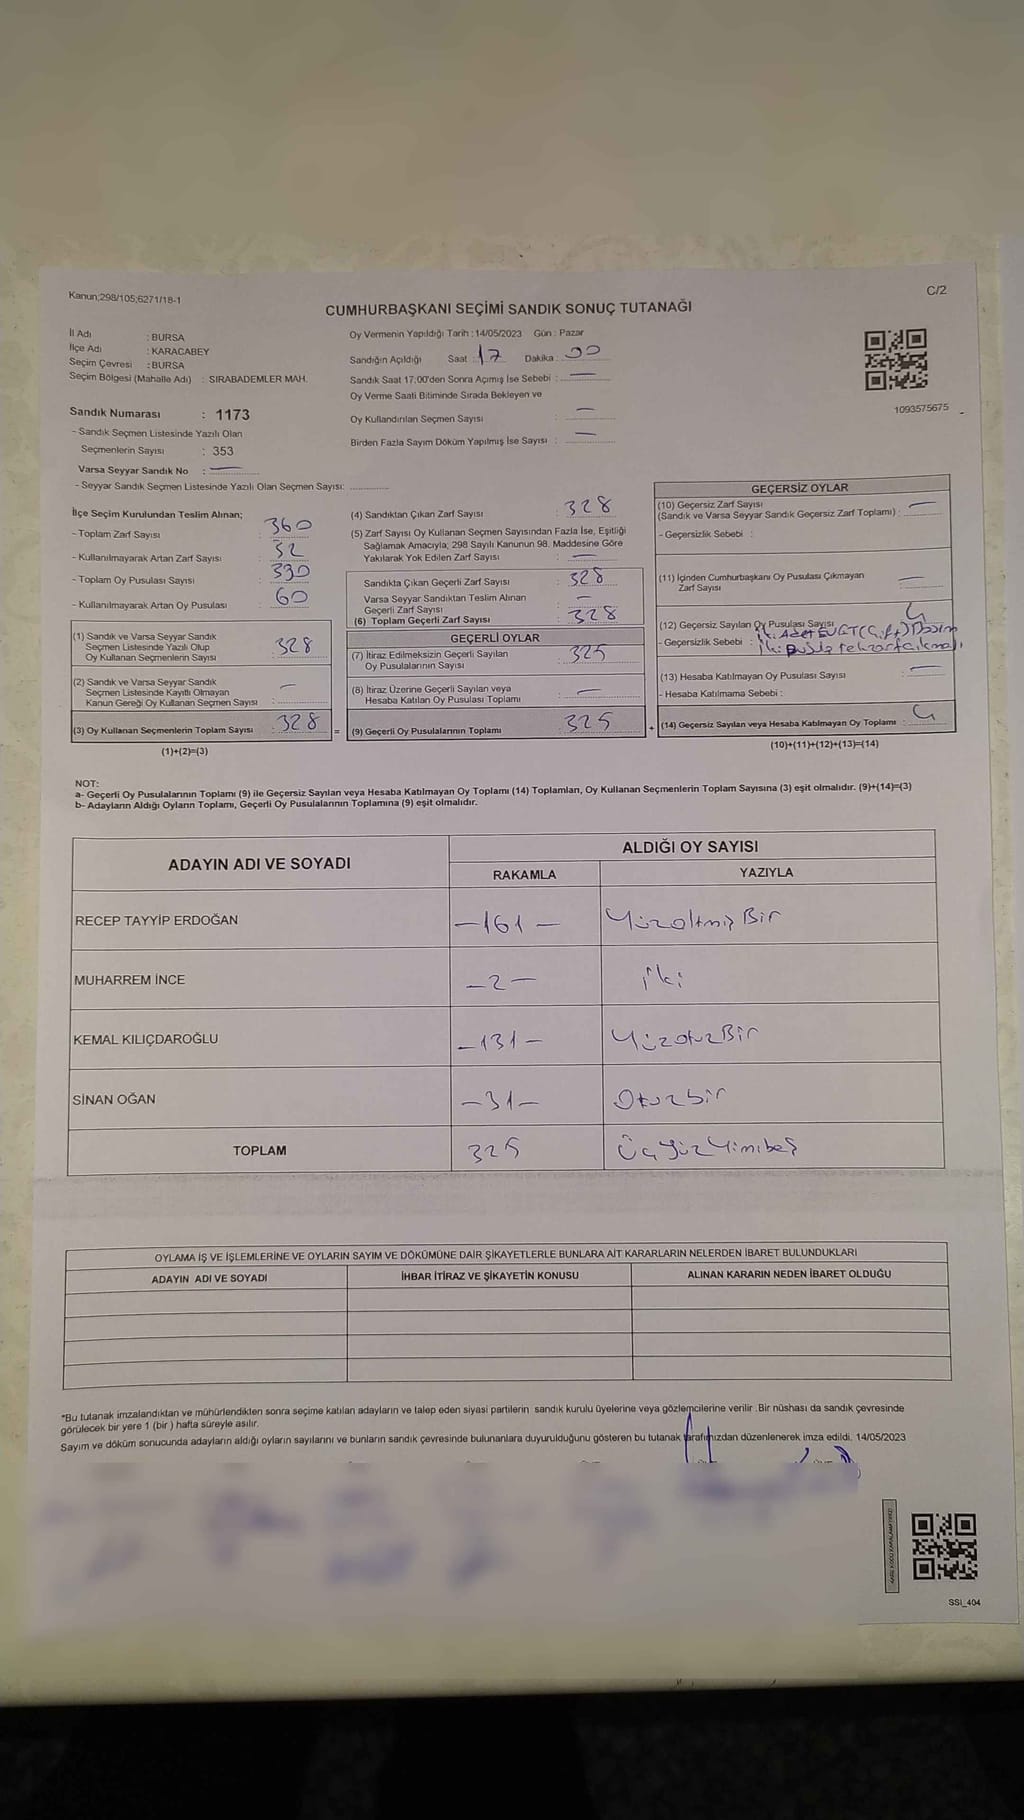 Kanun;298/105;6271/18-1
C/2
CUMHURBAŞKANI SEÇİMİ SANDIK SONUÇ TUTANAĞI
İl Adı : BURSA
İlçe Adı : KARACABEY
Seçim Çevresi : BURSA
Seçim Bölgesi (Mahalle Adı) : SIRABADEMLER MAH.
Oy Vermenin Yapıldığı Tarih : 14/05/2023 Gün : Pazar
Sandığın Açıldığı Saat : 17 Dakika : 00
Sandık Saat 17:00'den Sonra Açımış İse Sebebi : —
Oy Verme Saati Bitiminde Sırada Bekleyen ve
Oy Kullandırılan Seçmen Sayısı : —
Birden Fazla Sayım Döküm Yapılmış İse Sayısı : —
1093575675
Sandık Numarası : 1173
- Sandık Seçmen Listesinde Yazılı Olan
Seçmenlerin Sayısı : 353
Varsa Seyyar Sandık No : —
- Seyyar Sandık Seçmen Listesinde Yazılı Olan Seçmen Sayısı:
İlçe Seçim Kurulundan Teslim Alınan;
- Toplam Zarf Sayısı : 360
- Kullanılmayarak Artan Zarf Sayısı : 32
- Toplam Oy Pusulası Sayısı : 390
- Kullanılmayarak Artan Oy Pusulası : 60
(1) Sandık ve Varsa Seyyar Sandık
Seçmen Listesinde Yazılı Olup
Oy Kullanan Seçmenlerin Sayısı : 328
(2) Sandık ve Varsa Seyyar Sandık
Seçmen Listesinde Kayıtlı Olmayan
Kanun Gereği Oy Kullanan Seçmen Sayısı : —
(3) Oy Kullanan Seçmenlerin Toplam Sayısı : 328
(1)+(2)=(3)
=
(4) Sandıktan Çıkan Zarf Sayısı : 328
(5) Zarf Sayısı Oy Kullanan Seçmen Sayısından Fazla İse, Eşitliği
Sağlamak Amacıyla; 298 Sayılı Kanunun 98. Maddesine Göre
Yakılarak Yok Edilen Zarf Sayısı : —
Sandıkta Çıkan Geçerli Zarf Sayısı : 328
Varsa Seyyar Sandıktan Teslim Alınan
Geçerli Zarf Sayısı : —
(6) Toplam Geçerli Zarf Sayısı : 328
GEÇERLİ OYLAR
(7) İtiraz Edilmeksizin Geçerli Sayılan
Oy Pusulalarının Sayısı : 325
(8) İtiraz Üzerine Geçerli Sayılan veya
Hesaba Katılan Oy Pusulası Toplamı : —
(9) Geçerli Oy Pusulalarının Toplamı : 325
+
GEÇERSİZ OYLAR
(10) Geçersiz Zarf Sayısı
(Sandık ve Varsa Seyyar Sandık Geçersiz Zarf Toplamı) : —
- Geçersizlik Sebebi :
(11) İçinden Cumhurbaşkanı Oy Pusulası Çıkmayan
Zarf Sayısı : —
(12) Geçersiz Sayılan Oy Pusulası Sayısı : 4
- Geçersizlik Sebebi : iki Adet EVET (Çift)
iki pusula tek zarfta çıkması
(13) Hesaba Katılmayan Oy Pusulası Sayısı : —
- Hesaba Katılmama Sebebi :
(14) Geçersiz Sayılan veya Hesaba Katılmayan Oy Toplamı : 4
(10)+(11)+(12)+(13)=(14)
NOT:
a- Geçerli Oy Pusulalarının Toplamı (9) ile Geçersiz Sayılan veya Hesaba Katılmayan Oy Toplamı (14) Toplamları, Oy Kullanan Seçmenlerin Toplam Sayısına (3) eşit olmalıdır. (9)+(14)=(3)
b- Adayların Aldığı Oyların Toplamı, Geçerli Oy Pusulalarının Toplamına (9) eşit olmalıdır.
ADAYIN ADI VE SOYADI
ALDIĞI OY SAYISI
RAKAMLA YAZIYLA
RECEP TAYYİP ERDOĞAN —161— Yüzaltmış Bir
MUHARREM İNCE —2— iki
KEMAL KILIÇDAROĞLU —131— YüzotuzBir
SİNAN OĞAN —31— Otuzbir
TOPLAM 325 ÜçyüzYirmibeş
OYLAMA İŞ VE İŞLEMLERİNE VE OYLARIN SAYIM VE DÖKÜMÜNE DAİR ŞİKAYETLERLE BUNLARA AİT KARARLARIN NELERDEN İBARET BULUNDUKLARI
ADAYIN ADI VE SOYADI İHBAR İTİRAZ VE ŞİKAYETİN KONUSU ALINAN KARARIN NEDEN İBARET OLDUĞU
*Bu tutanak imzalandıktan ve mühürlendikten sonra seçime katılan adayların ve talep eden siyasi partilerin sandık kurulu üyelerine veya gözlemcilerine verilir .Bir nüshası da sandık çevresinde
görülecek bir yere 1 (bir ) hafta süreyle asılır.
Sayım ve döküm sonucunda adayların aldığı oyların sayılarını ve bunların sandık çevresinde bulunanlara duyurulduğunu gösteren bu tutanak tarafımızdan düzenlenerek imza edildi. 14/05/2023
SSİ_404